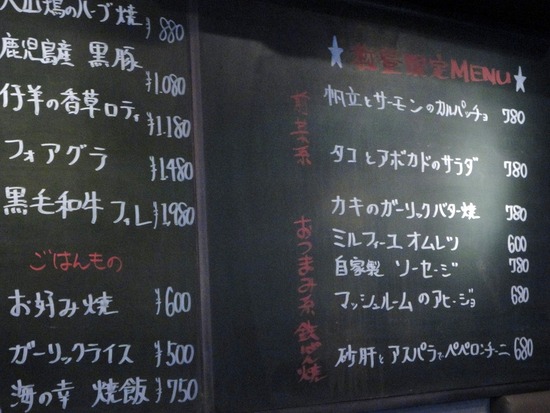 大山鶏のハーブ焼 ¥880
鹿児島産 黒豚 ¥1.080
仔羊の香草ロティ ¥1.180
フォアグラ ¥1.480
黒毛和牛 フィレ ¥1.980
ごはんもの
お好み焼 ¥600
ガーリックライス ¥500
海の幸 焼飯 ¥750
★ 限定MENU ★
前菜系
帆立とサーモンのカルパッチョ 780
タコとアボカドのサラダ 780
おつまみ系鉄ぱん焼
カキのガーリックバター焼 780
ミルフィーユ オムレツ 600
自家製 ソーセージ 780
マッシュルームのアヒージョ 680
砂肝とアスパラでペペロンチーニ 680